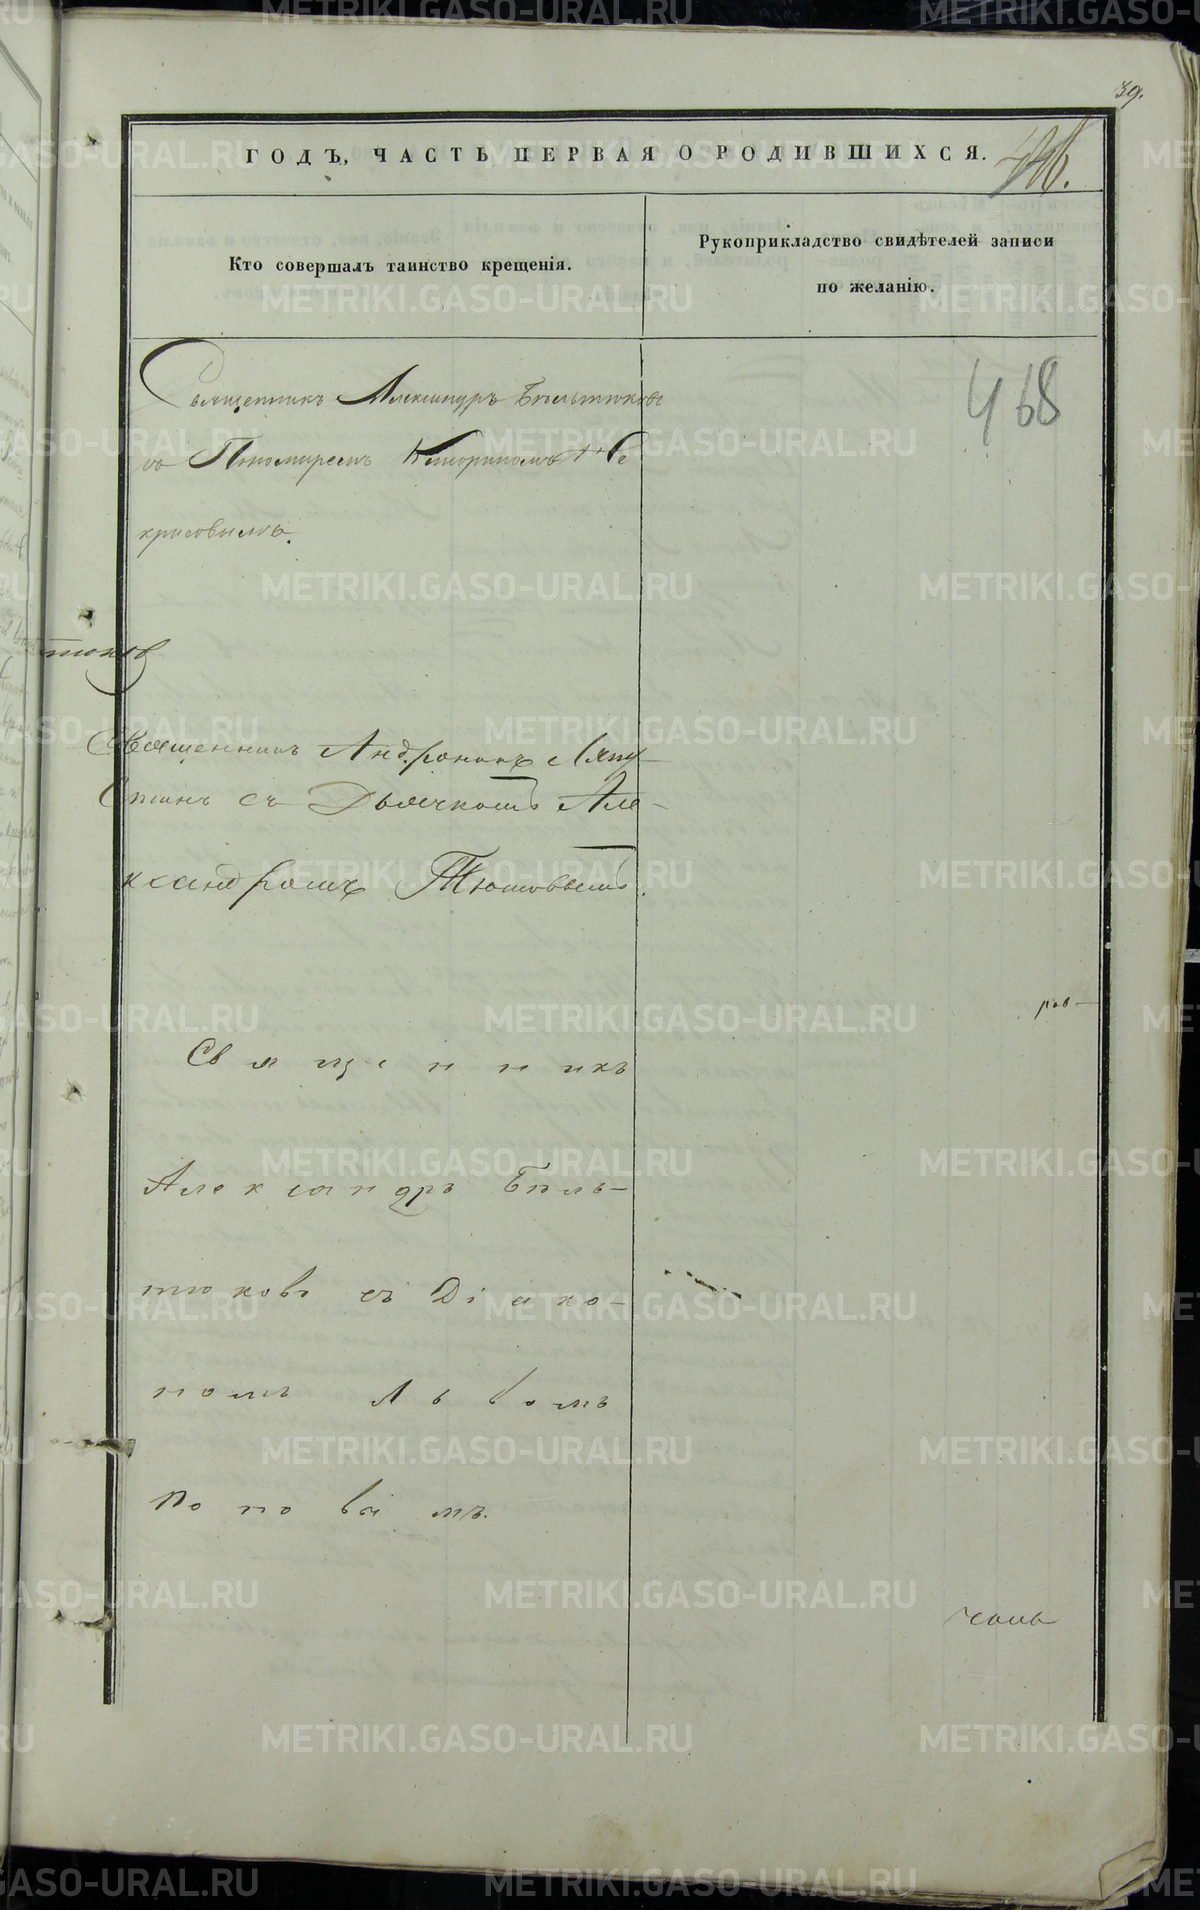 39.
ГОДЪ, ЧАСТЬ ПЕРВАЯ О РОДИВШИХСЯ.
Кто совершалъ таинство крещенія.
Рукоприкладство свидѣтелей записи
по желанію.
468
Священникъ Александръ Бѣльтюковъ
съ Пономаремъ Не
красовымъ.
тюковъ
Священникъ Андроникъ Лапу
стинъ съ Дьячкомъ Але-
ксандромъ Тюшовымъ.
ров-
Священникъ
Александръ Бѣль-
тюковъ съ Діако-
номъ Львомъ
Поповымъ.
METRIKI.GASO-URAL.RU